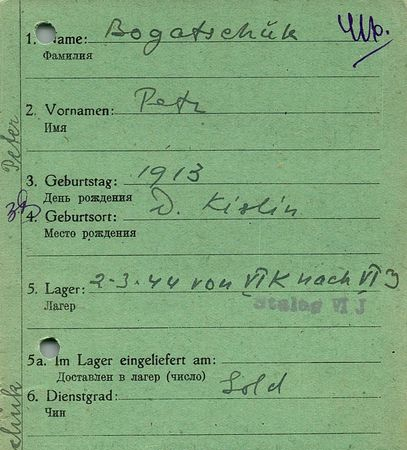 1. Name: Bogatschuk
Фамилия
2. Vornamen: Petr
Имя
3. Geburtstag: 1913
День рождения
4. Geburtsort: D. Kislin
Место рождения
5. Lager: 2-3-44 von VI K nach VI J
Лагер
Stalag VI J
5a. Im Lager eingeliefert am:
Доставлен в лагер (число)
6. Dienstgrad: Sold
Чин
Peter